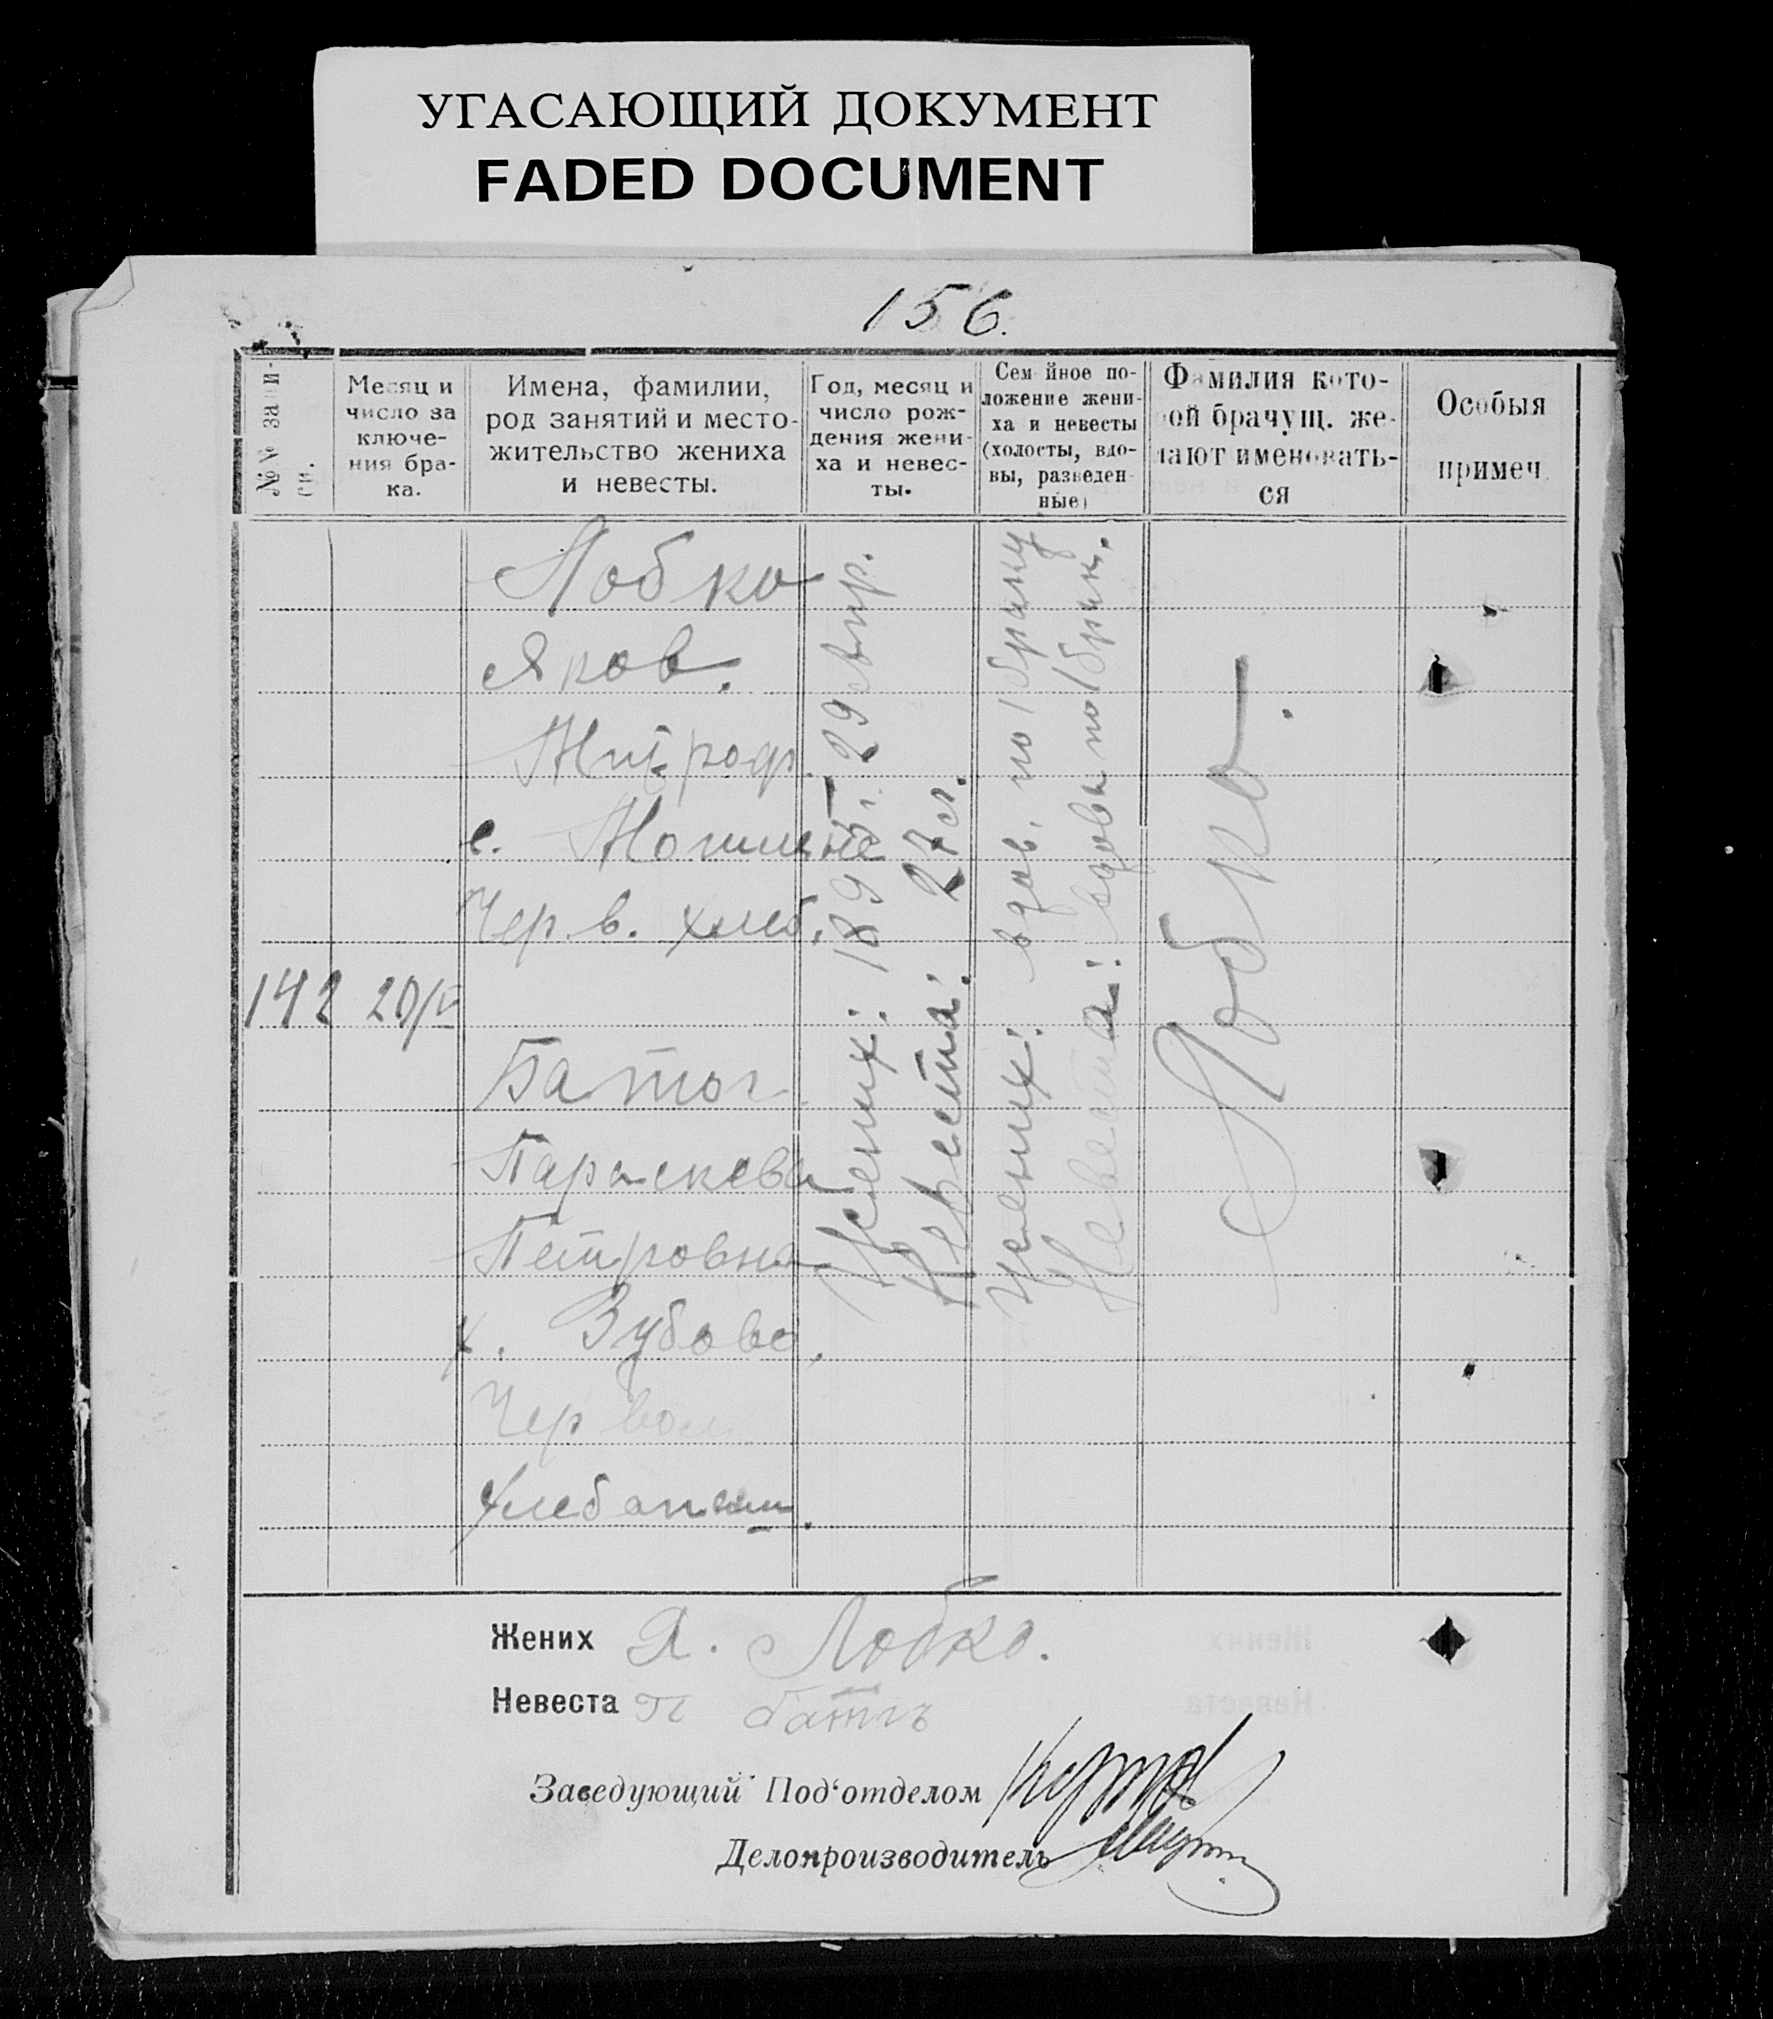 УГАСАЮЩИЙ ДОКУМЕНТ
FADED DOCUMENT
156.
№№ записи.
Месяц и
число за
ключе-
ния бра-
ка.
Имена, фамилии,
род занятий и место-
жительство жениха
и невесты.
Год, месяц и
число рож-
дения жени-
ха и невес-
ты.
Семейное по-
ложение жени-
ха и невесты
(холосты, вдо-
вы, разведен-
ные)
Фамилия кото-
рой брачущ. же-
лают именовать-
ся
Особыя
примеч.
142
20/V
Лобко
Яков.
Митроф.
с.
Чер. в. хлеб.
Батог
Параскева
Петровна
х. Зубово,
Чер вол
хлебопаш.
Жених: 1895 г. 29 Апр.
Невеста: 27 л.
Жених: вдов. по 1 браку
Невеста: вдова по 1 брак.
Лобко.
Жених Я. Лобко.
Невеста П Батгъ
Заведующий Под'отделом
Делопроизводитель